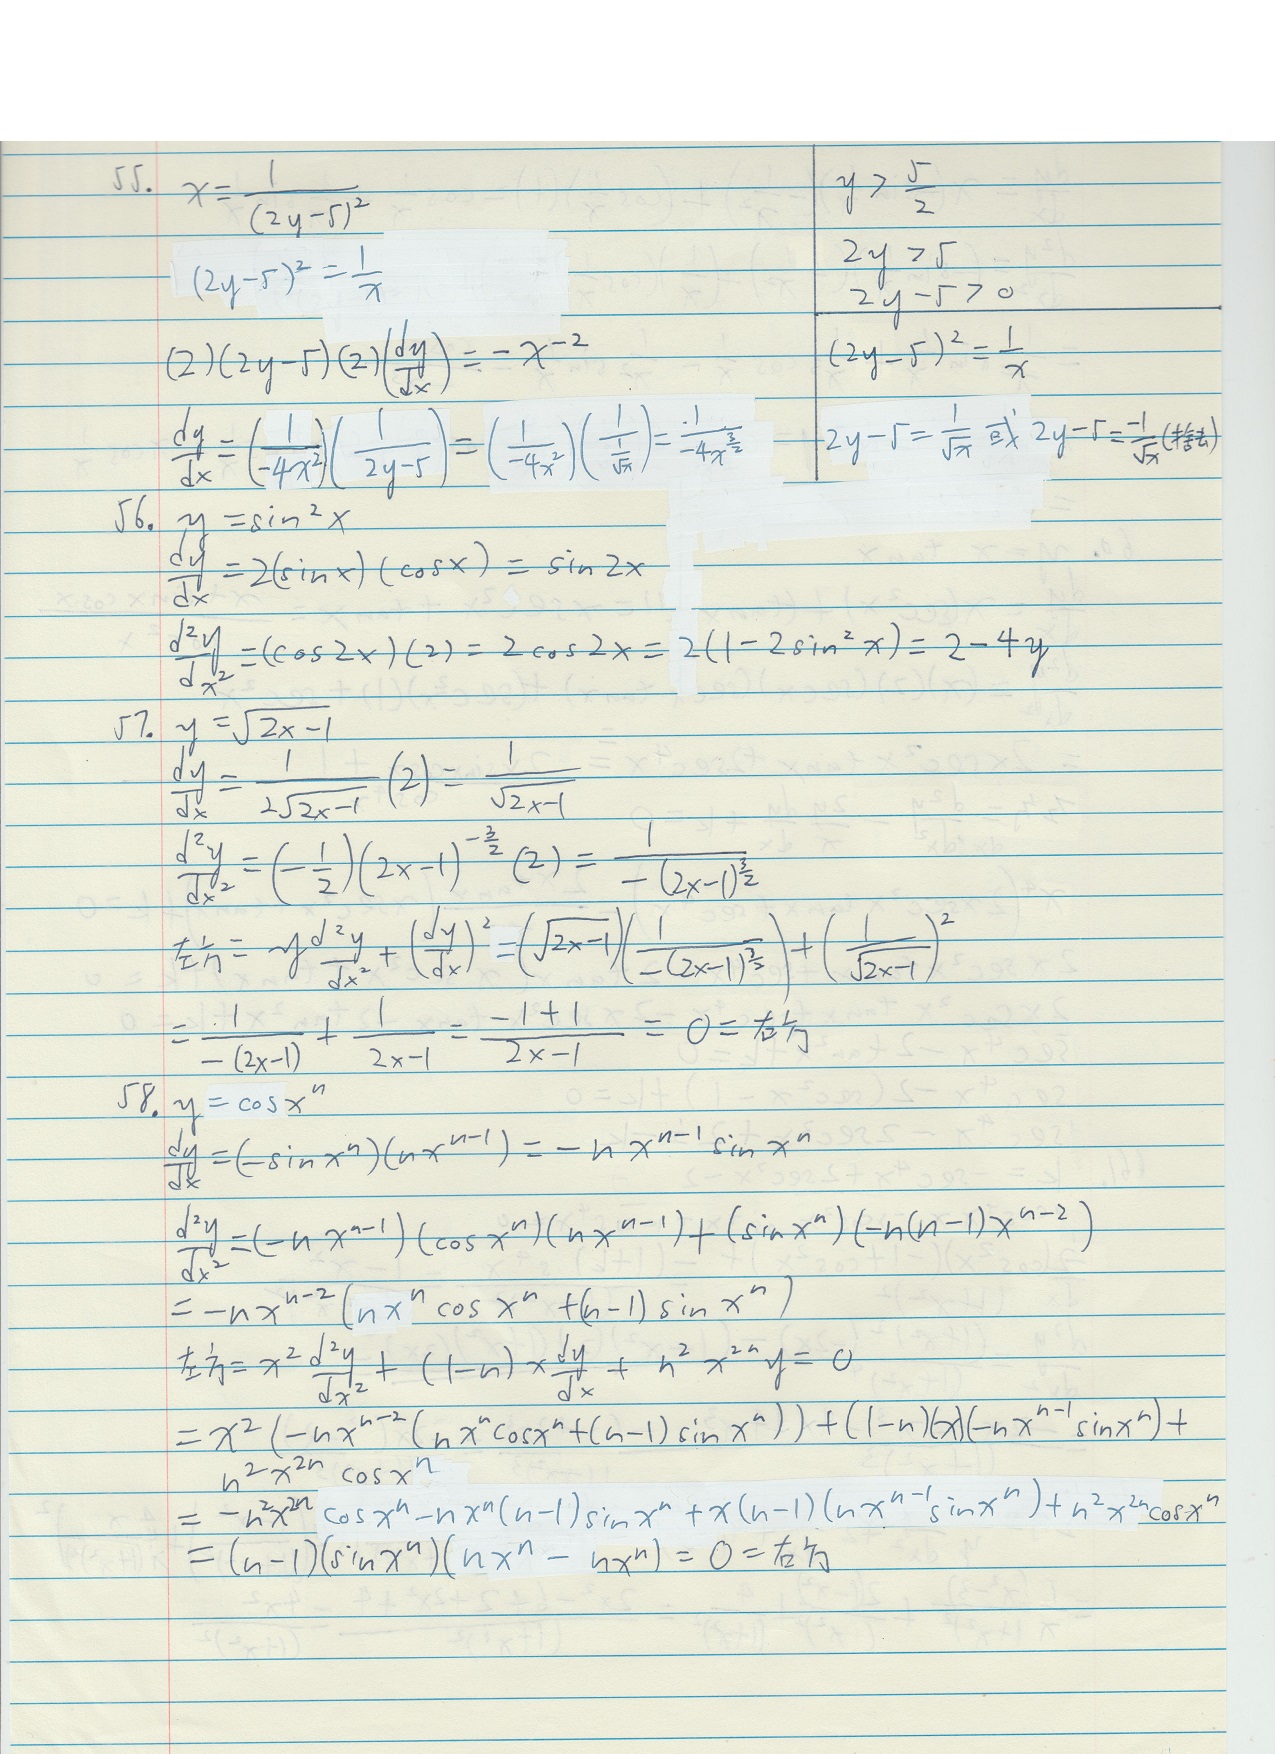 55. x = 1/(2y-5)²
(2y-5)² = 1/x
(2)(2y-5)(2)(dy/dx) = -x⁻²
dy/dx = (1/(-4x²))(1/(2y-5)) = (1/(-4x²))(1/(1/√x)) = 1/(-4x^(3/2))
y > 5/2
2y > 5
2y-5 > 0
(2y-5)² = 1/x
2y-5 = 1/√x 或 2y-5 = -1/√x (捨去)
56. y = sin²x
dy/dx = 2(sinx)(cosx) = sin2x
d²y/dx² = (cos2x)(2) = 2cos2x = 2(1-2sin²x) = 2-4y
57. y = √(2x-1)
dy/dx = 1/(2√(2x-1)) (2) = 1/√(2x-1)
d²y/dx² = (-1/2)(2x-1)^(-3/2) (2) = 1/(-(2x-1)^(3/2))
左方 = y d²y/dx² + (dy/dx)² = (√(2x-1))(1/(-(2x-1)^(3/2))) + (1/√(2x-1))²
= 1/(-(2x-1)) + 1/(2x-1) = (-1+1)/(2x-1) = 0 = 右方
58. y = cosxⁿ
dy/dx = (-sinxⁿ)(nxⁿ⁻¹) = -nxⁿ⁻¹sinxⁿ
d²y/dx² = (-nxⁿ⁻¹)(cosxⁿ)(nxⁿ⁻¹) + (sinxⁿ)(-n(n-1)xⁿ⁻²)
= -nxⁿ⁻²(nxⁿcosxⁿ + (n-1)sinxⁿ)
左方 = x² d²y/dx² + (1-n)x dy/dx + n²x²ⁿy = 0
= x²(-nxⁿ⁻²(nxⁿcosxⁿ+(n-1)sinxⁿ)) + (1-n)(x)(-nxⁿ⁻¹sinxⁿ) +
n²x²ⁿcosxⁿ
= -n²x²ⁿcosxⁿ - nxⁿ(n-1)sinxⁿ + x(n-1)(nxⁿ⁻¹sinxⁿ) + n²x²ⁿcosxⁿ
= (n-1)(sinxⁿ)(nxⁿ - nxⁿ) = 0 = 右方